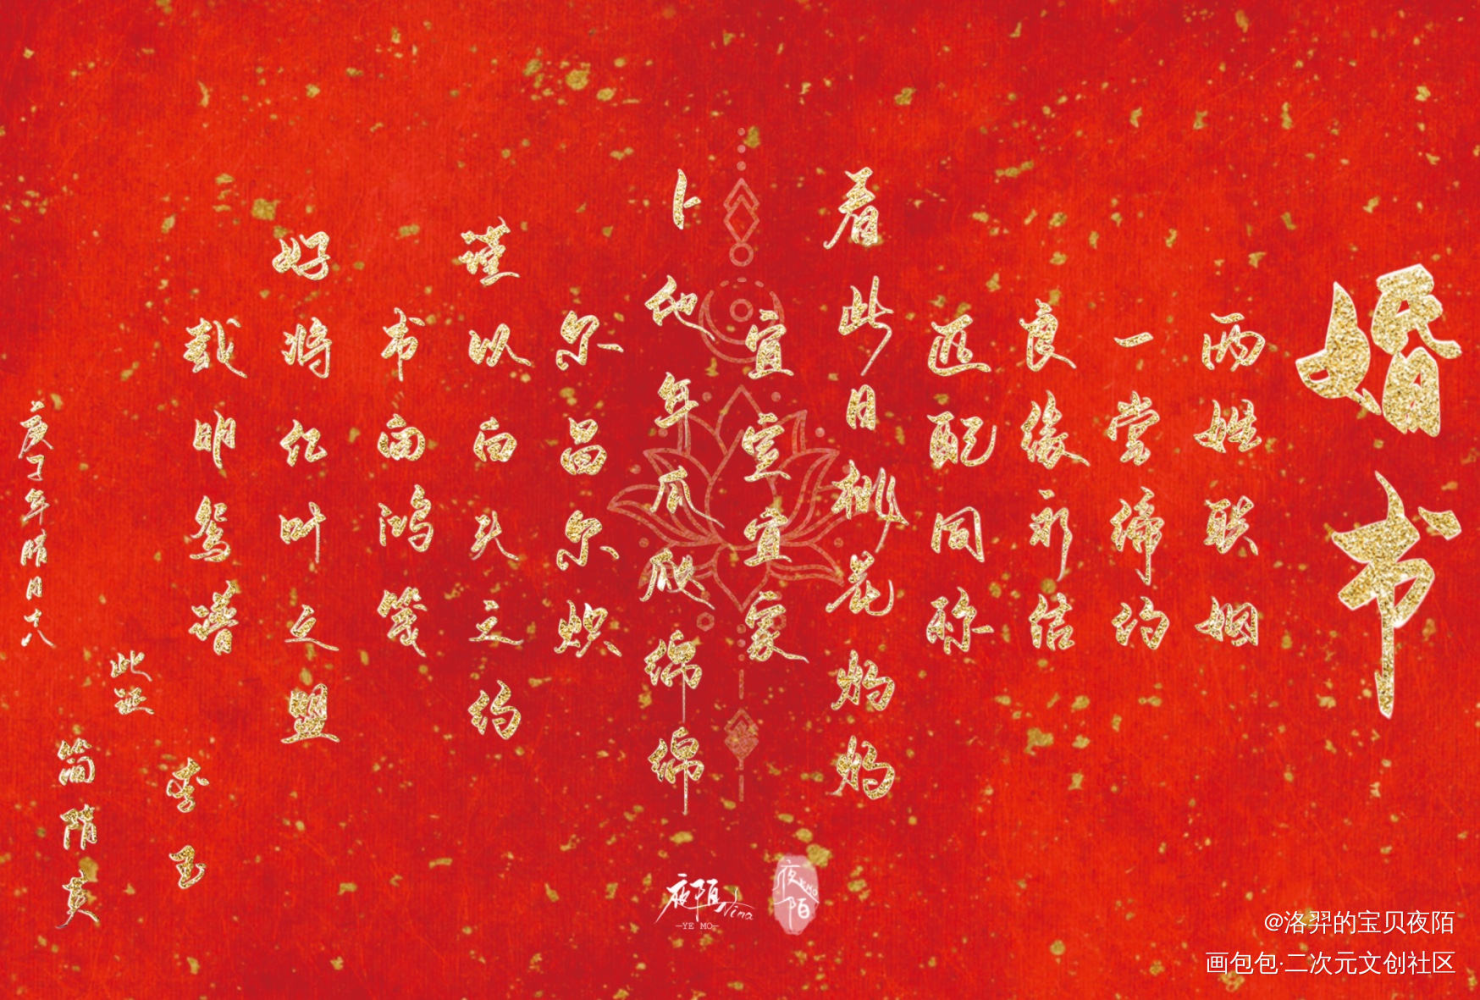 婚书
两姓联姻
一堂缔约
良缘永结
匹配同称
看此日桃花灼灼
宜室宜家
卜他年瓜瓞绵绵
尔昌尔炽
谨以白头之约
书向鸿笺
好将红叶之盟
载明鸳谱
李玉
此证
简隋英
庚子年腊月十八
夜陌
Nina
—YE MO—
夜陌
@洛羿的宝贝夜陌
画包包·二次元文创社区